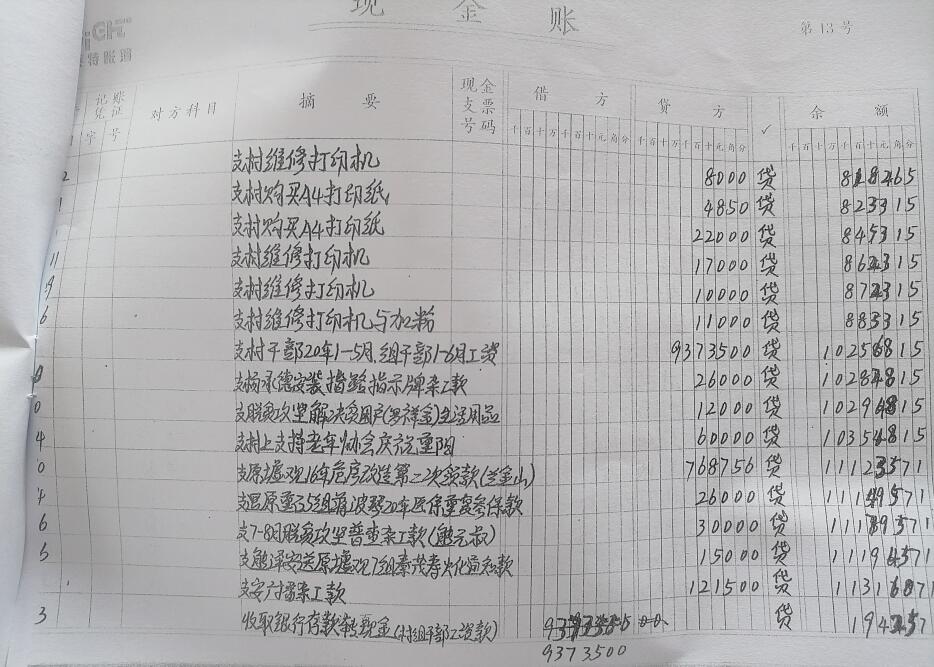 现 金 账
第 13 号
记账凭证 对方科目 摘 要 现金支票号码 借 方 贷 方 ✓ 余 额
字 号 千百十万千百十元角分 千百十万千百十元角分 千百十万千百十元角分
2 支村维修打印机 8000 贷 818465
1 支村购买A4打印纸 4850 贷 823315
支村购买A4打印纸 22000 贷 845315
11 支村维修打印机 17000 贷 862315
9 支村维修打印机 10000 贷 872315
6 支村维修打印机与加粉 11000 贷 883315
支村干部20年1-5月,组干部1-6月工资 9373500 贷 10256815
支杨承德安装指路指示牌杂工款 26000 贷 10282815
0 支脱贫攻坚解决贫困户(罗祥金)生活用品 12000 贷 10294815
4 支村上支持老年协会庆元重阳 60000 贷 10354815
0 支原墟观16年危房改造第二次领款(兰金山) 768756 贷 11123571
4 20年医保重复参保款 26000 贷 11149571
6 支7-8月脱贫攻坚普查杂工款(熊元叔) 30000 贷 11179571
5 支熊泽安送原墟观7组秦茂寿火化通知款 15000 贷 11194571
支安广播杂工款 121500 贷 11316071
3 收取银行存款转现金(村组干部工资款) 贷
9373500